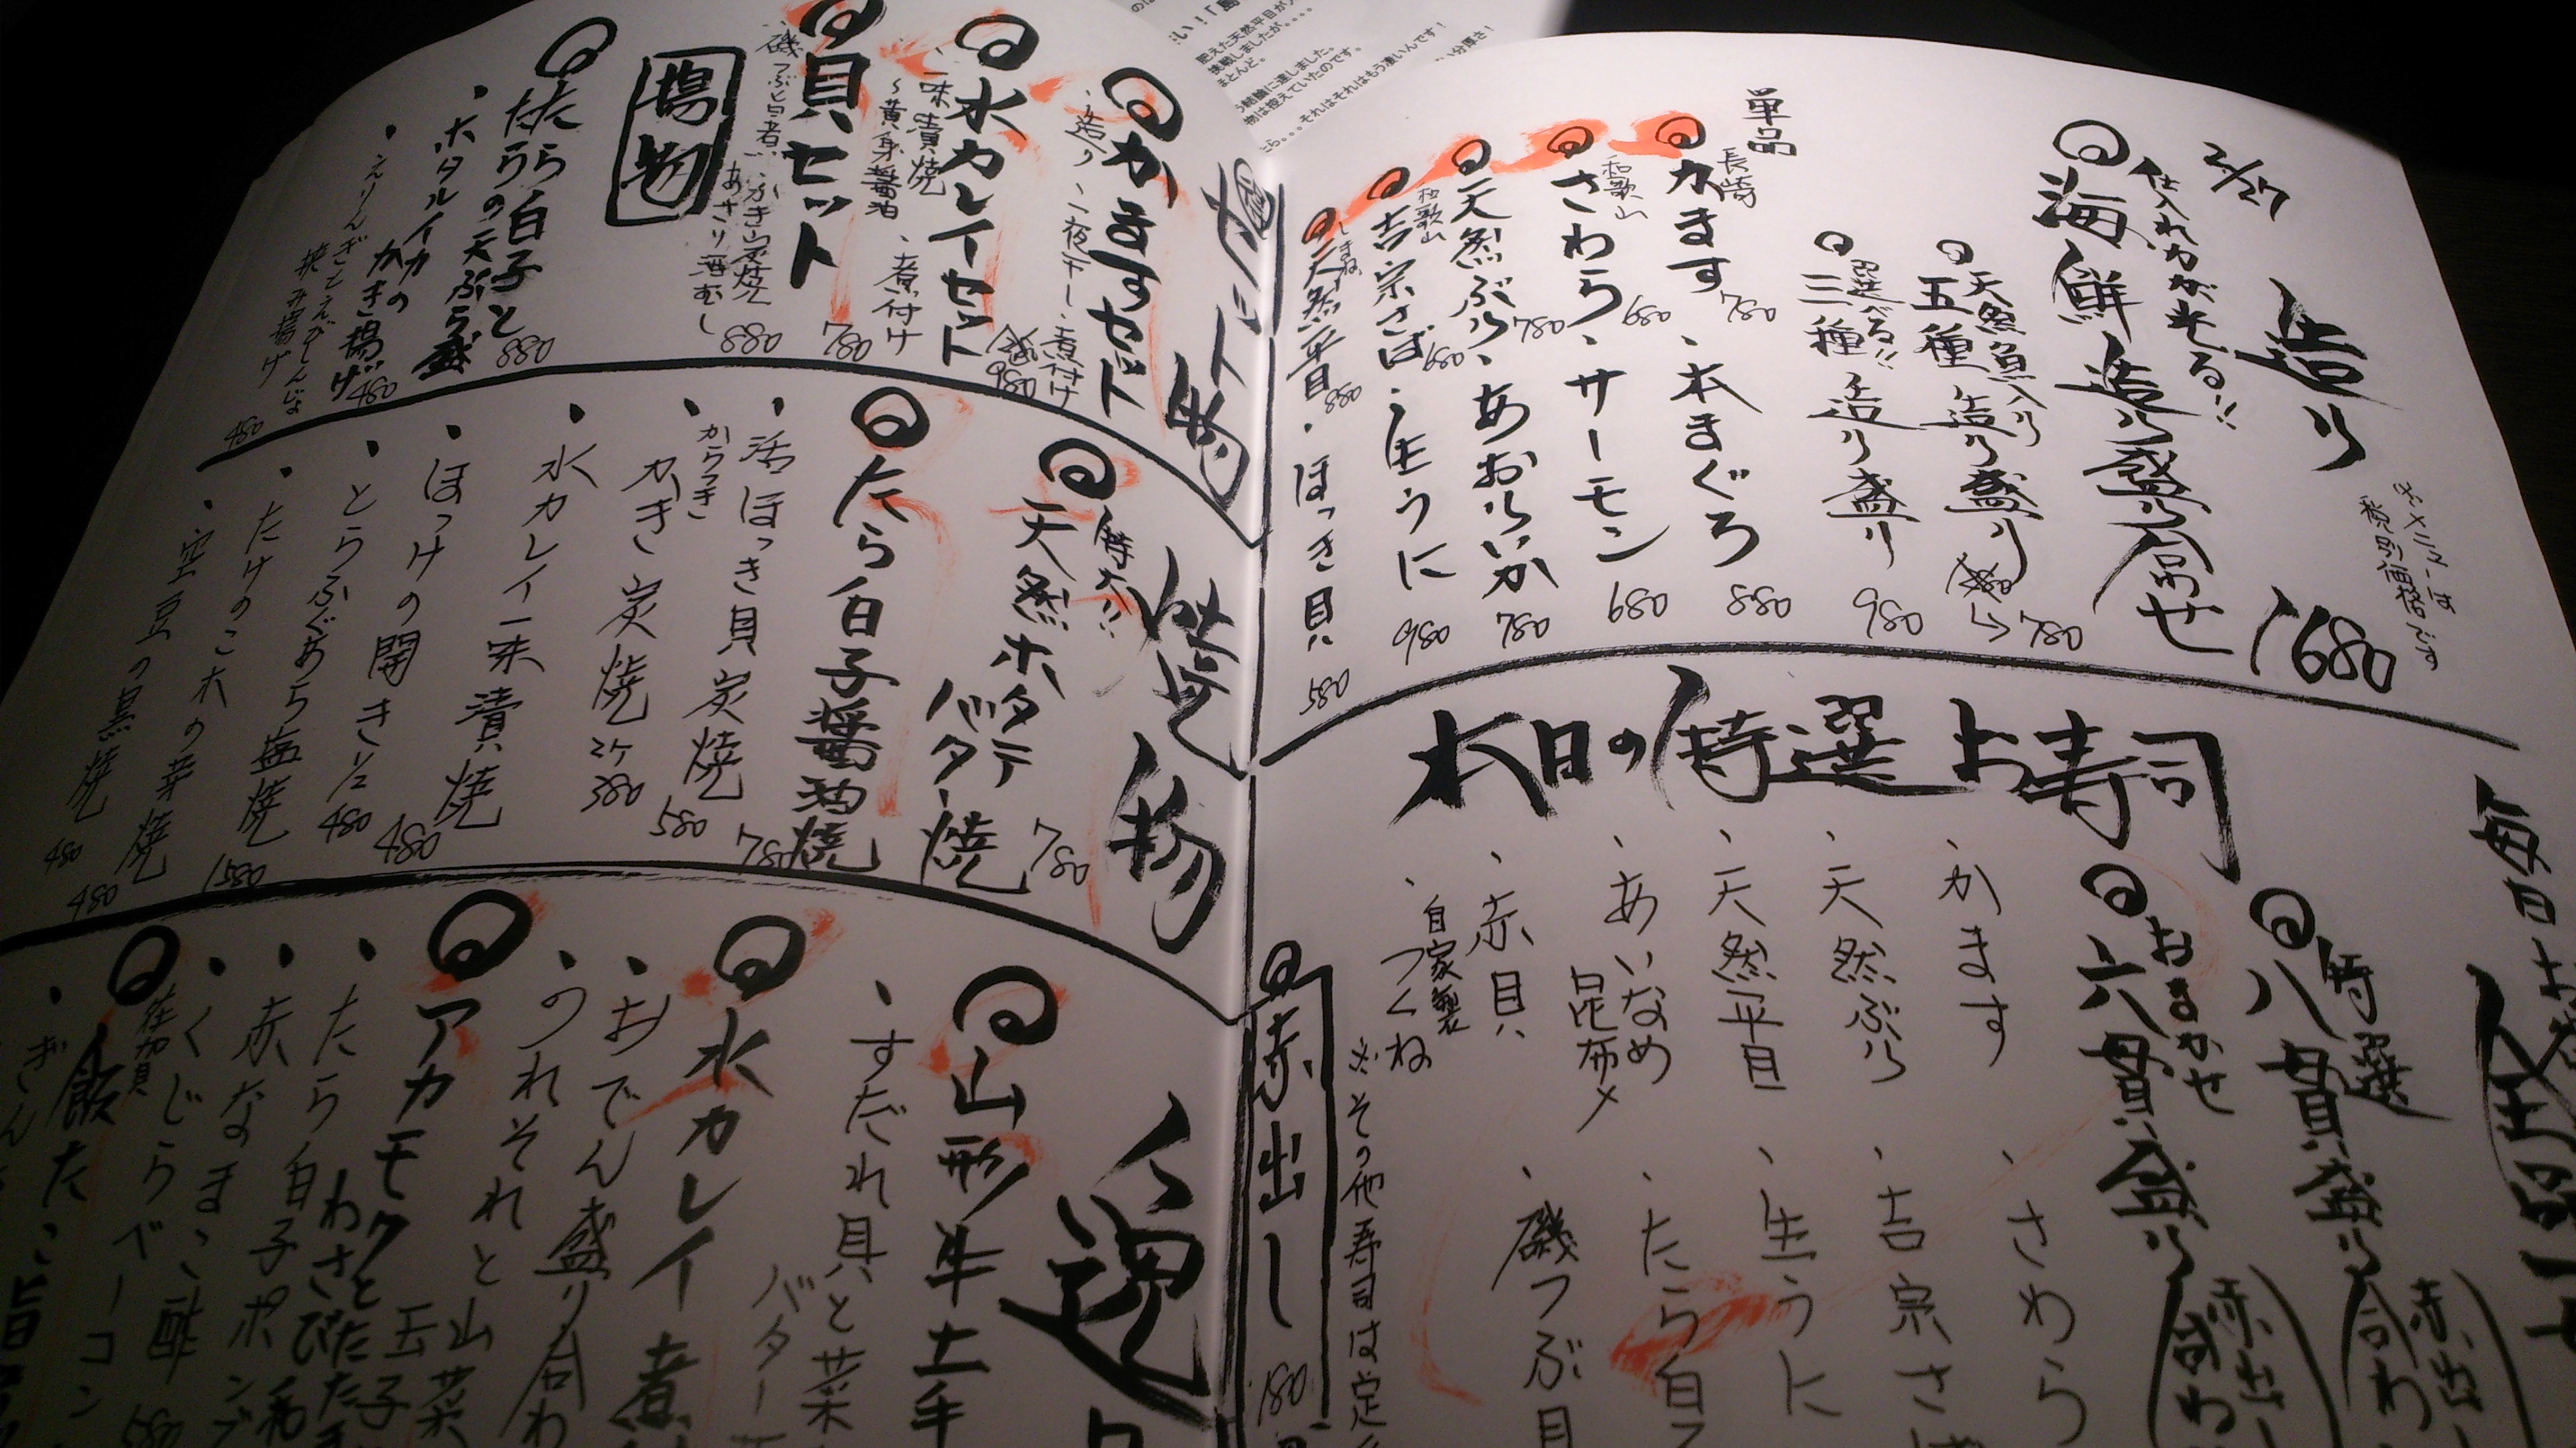 2/27
造り
仕入れわが来る!!
海鮮造り盛り合せ
1680
税別価格です
天然魚入り
五種造り盛り
780
選べる!!
三種造り盛り
980
単品
長崎
かます
780
、本まぐろ
880
和歌山
さわら
680
、サーモン
680
天然ぶり
780
、あおりいか
780
和歌山
吉宗さば
680
、生うに
980
天然平目
880
・ほっき貝
580
本日の特選お寿司
特選
八貫盛り
おまかせ
六貫盛り
、かます
、さわら
、天然ぶり
、吉宗さば
、天然平目
、生うに
、あいなめ
昆布〆
、たら白子
、赤貝
、磯つぶ貝
、自家製
つくね
※その他寿司は定
赤出し
180
セット物
かますセット
、造り、一夜干し、煮付け
980
水カレイセット
一味漬焼
〜黄身醤油
、煮付け
780
貝セット
磯つぶ旨煮
・かき炭焼
あさり酒むし
880
揚物
たら白子と
たらの天ぷら盛
880
・ホタルイカの
かき揚げ
480
・えりんぎとえびしんじょ
挟み揚げ
480
焼物
特大!!
天然ホタテ
バター焼
780
たら白子醤油焼
780
・活ほっき貝炭焼
580
・からつき
かき炭焼
2ケ
380
・水カレイ一味漬焼
480
・ほっけの開き1/2
480
・とらふぐあら塩焼
1580
・たけのこ木の芽焼
480
・空豆の黒焼
480
山形牛土手
・すだれ貝と菜
バター
水カレイ煮
・おでん盛り合わ
・のれそれと山菜
玉子
アカモクと
わさびたたき
・たら白子ポン
・赤なまこ酢
580
・くじらベーコン
佐賀
飯だこ旨
毎日